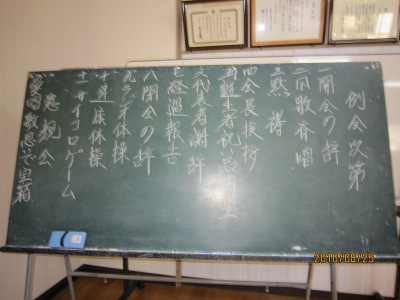 例会次第
一開会の辞
二同敬斉唱
三黙祷
四会長挨拶
五誕生者祝品贈呈
六代表者謝辞
七経過報告
八閉会の辞
九ラジオ体操
十健康体操
十一サイコロゲーム
懇親会
敬愚で宝箱
2010/09/25